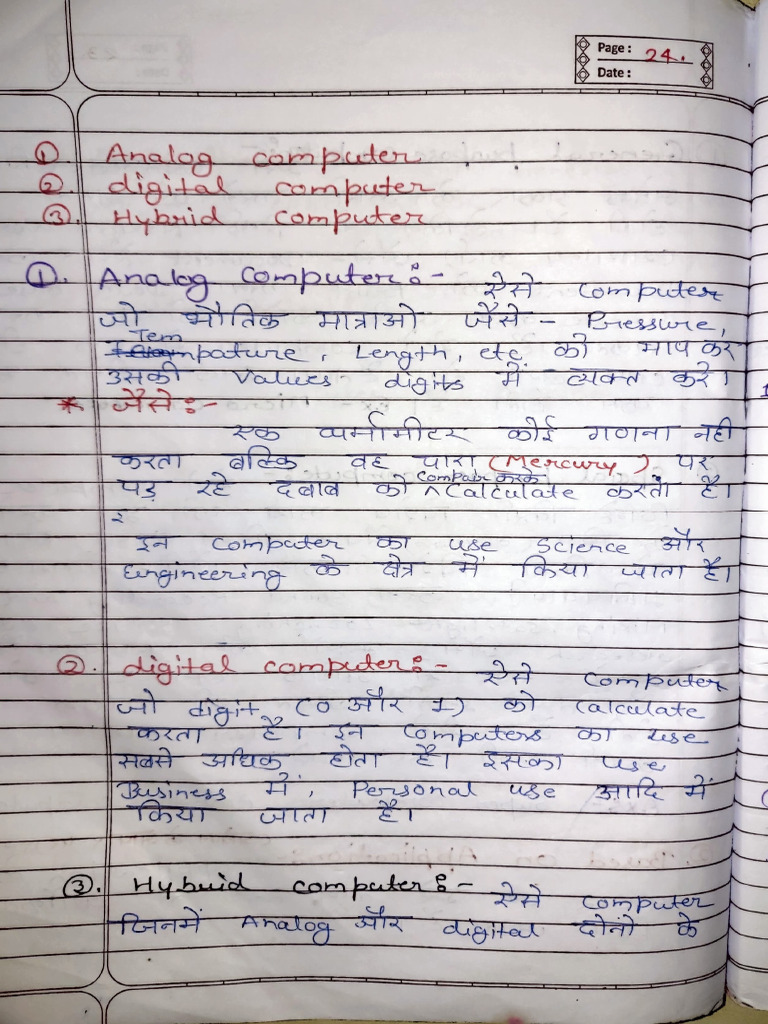 Page: 24.
Date:
①. Analog computer
②. digital computer
③. Hybrid computer
①. Analog Computer:- ऐसे computer
जो भौतिक मात्राओ जैसे- Pressure,
Tem
mpature, Length, etc को माप कर
उसकी values digits में व्यक्त करे।
* जैसे:-
एक थर्मामीटर कोई गणना नही
करता बल्कि वह पारा (Mercury) पर
compair करके
पड़ रहे दबाब को ^Calculate करता है।
इन computer का use science और
Engineering के क्षेत्र में किया जाता है।
②. digital computer:- ऐसे computer
जो digit (0 और 1) को calculate
करता है। इन computers का use
सबसे अधिक होता है। इसका use
Business में, Personal use आदि में
किया जाता है।
③. Hybrid computer:- ऐसे computer
जिनमें Analog और digital दोनो के